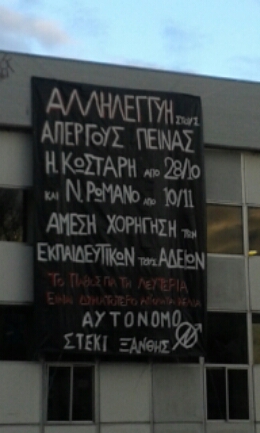 ΑΛΛΗΛΕΓΓΥΗ ΣΤΟΥΣ
ΑΠΕΡΓΟΥΣ ΠΕΙΝΑΣ
Η. ΚΩΣΤΑΡΗ ΑΠΟ 28/10
ΚΑΙ Ν. ΡΩΜΑΝΟ ΑΠΟ 10/11
ΑΜΕΣΗ ΧΟΡΗΓΗΣΗ ΤΩΝ
ΕΚΠΑΙΔΕΥΤΙΚΩΝ ΤΟΥΣ ΑΔΕΙΩΝ
ΤΟ ΠΑΘΟΣ ΓΙΑ ΤΗ ΛΕΥΤΕΡΙΑ
ΕΙΝΑΙ ΔΥΝΑΤΟΤΕΡΟ ΑΠ' ΟΛΑ ΤΑ ΚΕΛΙΑ
ΑΥΤΟΝΟΜΟ
ΣΤΕΚΙ ΞΑΝΘΗΣ